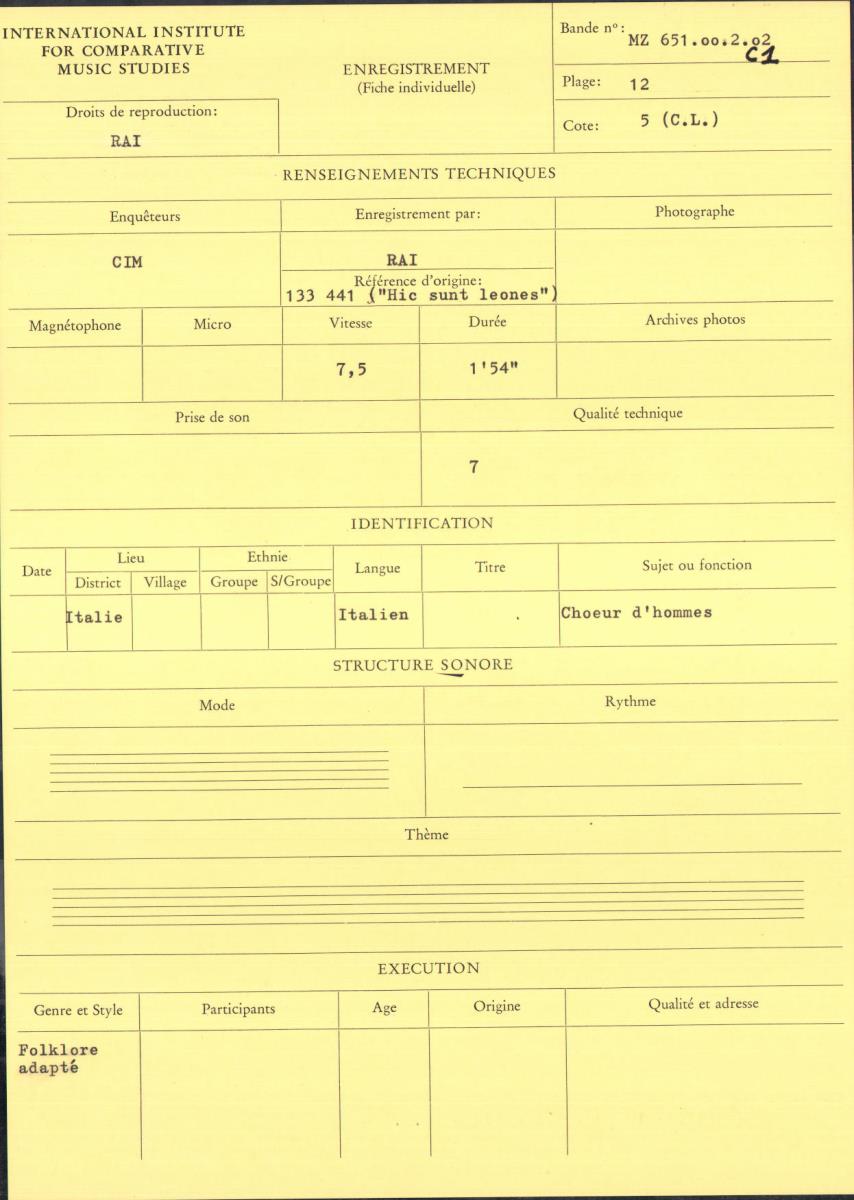 INTERNATIONAL INSTITUTE
FOR COMPARATIVE
MUSIC STUDIES
Droits de reproduction:
RAI
ENREGISTREMENT
(Fiche individuelle)
Bande nº: MZ 651.oo.2.o2
C1
Plage: 12
Cote: 5 (C.L.)
RENSEIGNEMENTS TECHNIQUES
Enquêteurs Enregistrement par: Photographe
CIM RAI
Référence d'origine:
133 441 ("Hic sunt leones")
Magnétophone Micro Vitesse Durée Archives photos
7,5 1'54"
Prise de son Qualité technique
7
IDENTIFICATION
Date Lieu Ethnie Langue Titre Sujet ou fonction
District Village Groupe S/Groupe
Italie Italien Choeur d'hommes
STRUCTURE SONORE
Mode Rythme
Thème
EXECUTION
Genre et Style Participants Age Origine Qualité et adresse
Folklore
adapté